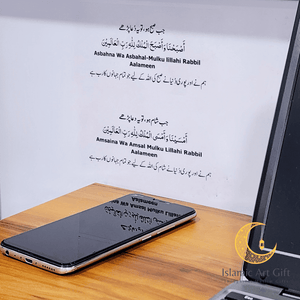 جب صبح ہو، تو یہ دعا پڑھے
أَصْبَحْنَا وَأَصْبَحَ الْمُلْكُ لِلّٰهِ رَبِّ الْعَالَمِيْنَ
Asbahna Wa Asbahal-Mulku lillahi Rabbil
Aalameen
ہم نے اور پوری دنیا نے صبح کی اللہ کے لیے جو تمام جہانوں کا رب ہے
جب شام ہو، تو یہ دعا پڑھے
أَمْسَيْنَا وَأَمْسَى الْمُلْكُ لِلّٰهِ رَبِّ الْعَالَمِيْنَ
Amsaina Wa Amsal Mulku Lillahi Rabbil
Aalameen
ہم نے اور پوری دنیا نے شام کی اللہ کے لیے جو تمام جہانوں کا رب ہے
Islamic Art Gift